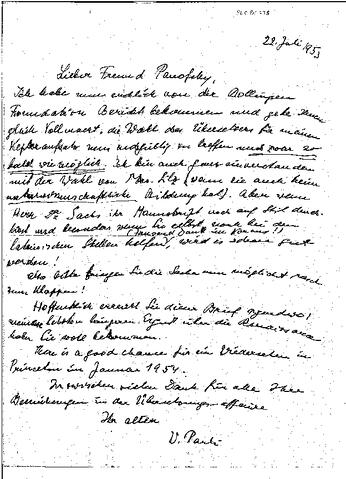 22. Juli 1953
Lieber Freund Panofsky,
Ich habe nun endlich von der Bollingen
Foundation Bericht bekommen und gebe Ihnen
Vollmacht, die Wahl des Übersetzers für meinen
Kepleraufsatz nun endgültig zu treffen und zwar so
bald wie möglich. Ich bin auch ganz einverstanden
mit der Wahl von Mrs. (wenn sie auch keine
naturwissenschaftliche Bildung hat). Aber wenn
Herr Dr. Sachs ihr Manuskript noch auf Stil durch-
liest und besonders wenn Sie selbst noch bei den
(Tausend Dank im Voraus!!)
lateinischen Stellen helfen, wird es schon gut
werden!
Also bitte bringen Sie die Sache nun möglichst rasch
zum Klappen!
Hoffentlich erreicht Sie dieser Brief irgendwo!
meinen letzten über die Renaissance
haben Sie wohl bekommen.
There is a good chance für ein Wiedersehen in
Princeton im Januar 1954.
Inzwischen vielen Dank für alle Ihre
Bemühungen in der Übersetzungs-affaire
Ihr alter
W. Pauli